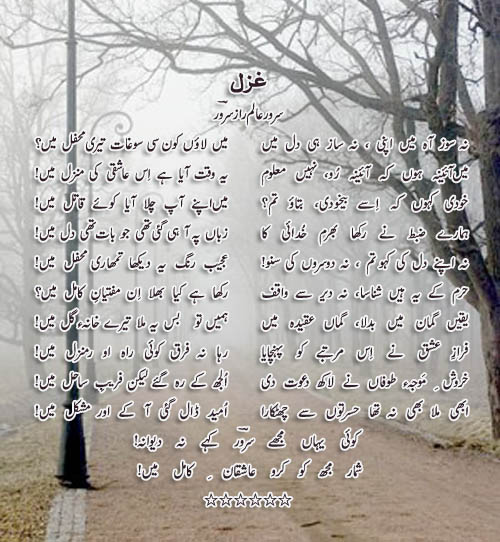 غزل
سرور عالم راز سرورؔ
نہ سوز آہ میں اپنی ، نہ ساز ہی دل میں میں لاؤں کون سی سوغات تیری محفل میں؟
میں آئینہ ہوں کہ آئینہ رُو، نہیں معلوم یہ وقت آیا ہے اِس عاشقی کی منزل میں!
خودی کہوں کہ اِسے بیخودی، بتاؤ تم؟ میں اپنے آپ چلا آیا کوئے قاتل میں!
ہمارے ضبط نے رکھا بھرم خدائی کا زباں پہ آ ہی گئی تھی جو بات تھی دل میں!
نہ اپنے دل کی کہو تم ، نہ دوسروں کی سنو! عجیب رنگ یہ دیکھا تمھاری محفل میں!
حرم کے یہ ہیں شناسا، نہ دیر سے واقف رکھا ہے کیا بھلا اِن مفتیانِ کامل میں؟
یقیں گماں میں بدلا، گماں عقیدہ میں ہمیں تو بس یہ ملا تیرے خانۂ گل میں!
فرازِ عشق نے اِس مرتبے کو پہنچایا رہا نہ فرق کوئی راہ او رمنزل میں!
خروشِ موجۂ طوفاں نے لاکھ دعوت دی اُلجھ کے رہ گئے لیکن فریبِ ساحل میں!
ابھی ملا بھی نہ تھا حسرتوں سے چھٹکارا اُمید ڈال گئی آ کے اور مشکل میں!
کوئی یہاں مجھے سرورؔ کہے نہ دیوانہ!
شمار مجھ کو کرو عاشقانِ کامل میں!
☆☆☆☆☆☆